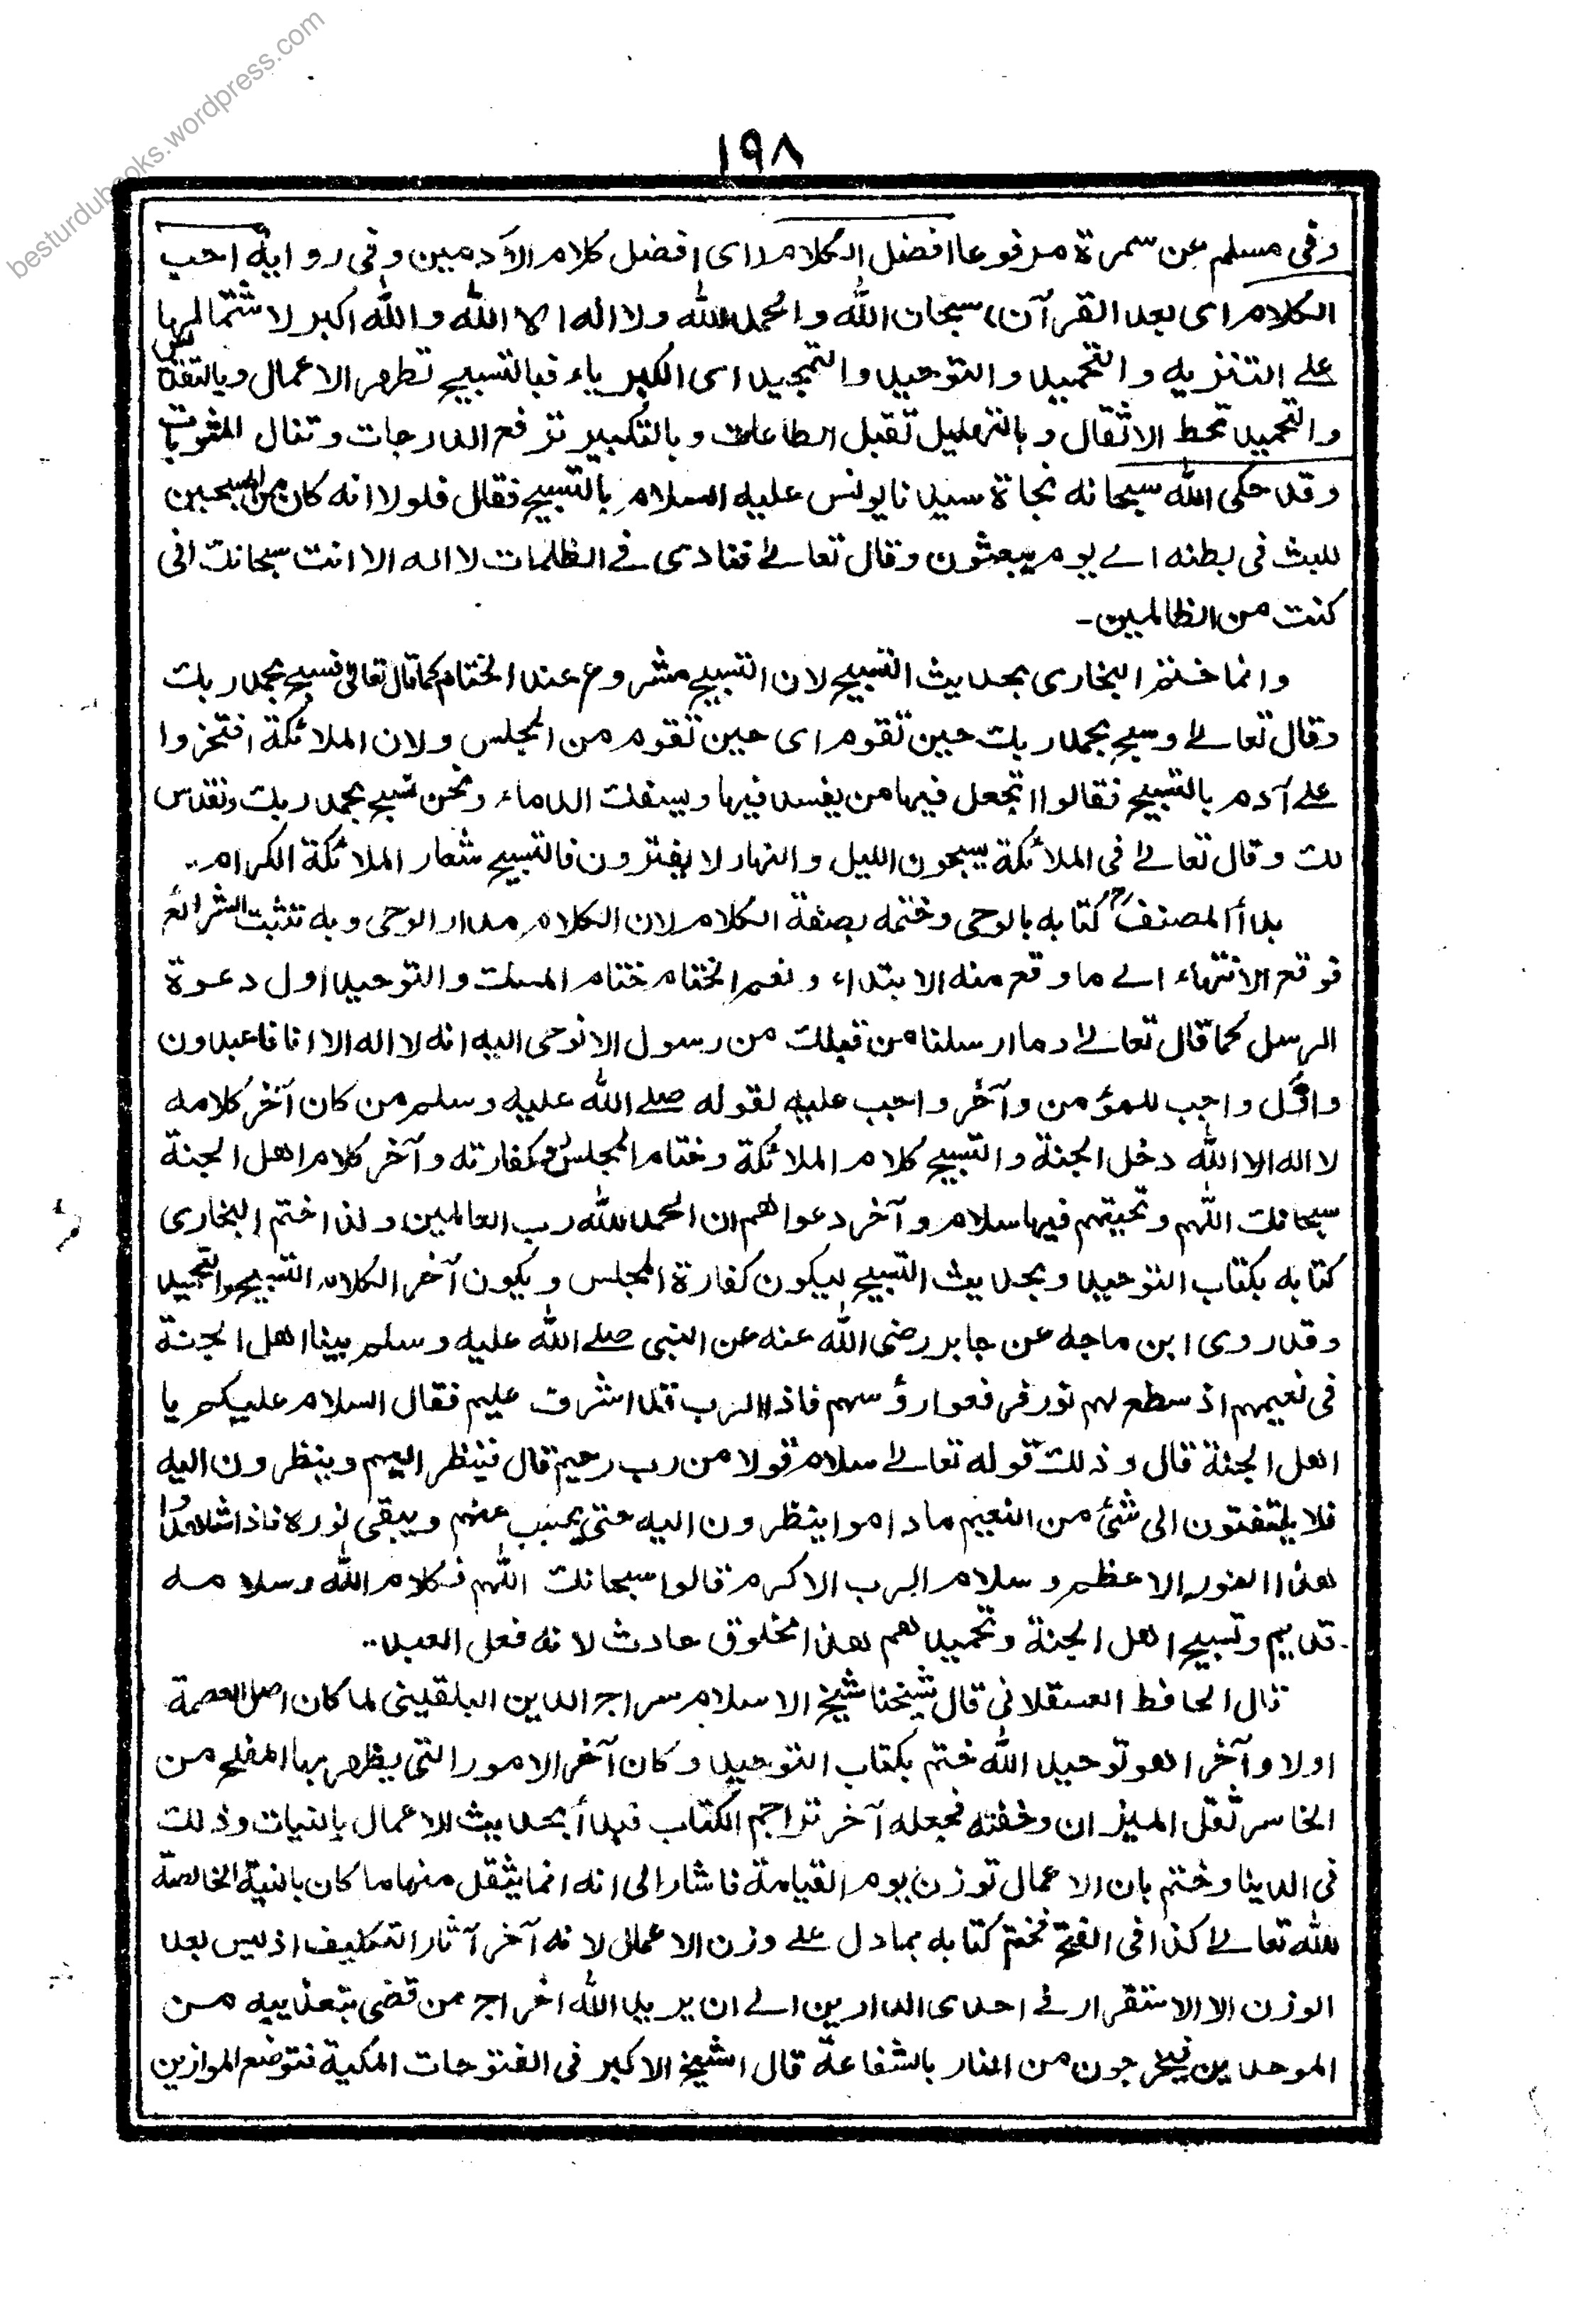 besturdubooks.wordpress.com
١٩٨
وفى مسلم عن سمرة مرفوعا افضل الكلام اى افضل كلام الآدميين وفى رواية احب
الكلام اى بعد القرآن، سبحان الله والحمد لله ولا اله الا الله والله اكبر لاشتمالها
على التنزيه والتحميد والتوحيد والتمجيد اى الكبرياء فبالتسبيح تطهر الاعمال وبالتقديس
والتحميد تحط الاثقال وبالتهليل تقبل الطاعات وبالتكبير ترفع الدرجات وتنال المثوبات
وقد حكى الله سبحانه نجاة سيدنا يونس عليه السلام بالتسبيح فقال فلولا انه كان من المسبحين
للبث فى بطنه الى يوم يبعثون وقال تعالى فنادى فى الظلمات لا اله الا انت سبحانك انى
كنت من الظالمين۔
وانما ختم البخارى بحديث التسبيح لان التسبيح مشروع عند الختام كما قال تعالى فسبح بحمد ربك
وقال تعالى وسبح بحمد ربك حين تقوم اى حين تقوم من المجلس ولان الملائكة افتخروا
على آدم بالتسبيح فقالوا اتجعل فيها من يفسد فيها ويسفك الدماء ونحن نسبح بحمد ربك ونقدس
لك وقال تعالى فى الملائكة يسبحون الليل والنهار لا يفترون فالتسبيح شعار الملائكة الكرام۔
بدأ المصنف كتابه بالوحى وختمه بصفة الكلام لان الكلام مدار الوحى وبه تثبت الشرائع
فوقع الانتهاء الى ما وقع منه الابتداء ونعم الختام ختام المسك والتوحيد اول دعوة
الرسل كما قال تعالى وما ارسلنا من قبلك من رسول الا نوحى اليه انه لا اله الا انا فاعبدون
واول واجب للمؤمن وآخر واجب عليه لقوله صلى الله عليه وسلم من كان آخر كلامه
لا اله الا الله دخل الجنة والتسبيح كلام الملائكة وختام المجلس وكفارته وآخر كلام اهل الجنة
سبحانك اللهم وتحيتهم فيها سلام وآخر دعواهم ان الحمد لله رب العالمين ولذا ختم البخارى
كتابه بكتاب التوحيد وبحديث التسبيح ليكون كفارة المجلس ويكون آخر الكلام التسبيح والتحميد
وقد روى ابن ماجه عن جابر رضى الله عنه عن النبى صلى الله عليه وسلم بينا اهل الجنة
فى نعيمهم اذ سطع لهم نور فرفعوا رؤسهم فاذا الرب قد اشرف عليهم فقال السلام عليكم يا
اهل الجنة قال وذلك قوله تعالى سلام قولا من رب رحيم قال فينظر اليهم وينظرون اليه
فلا يلتفتون الى شئ من النعيم ما داموا ينظرون اليه حتى يحتجب عنهم ويبقى نوره فاذا شاهدوا
هذا النور الاعظم وسلام الرب الاكرم قالوا سبحانك اللهم فكلام الله وسلامه
قديم وتسبيح اهل الجنة وتحميدهم هذا مخلوق حادث لانه فعل العبد۔
قال الحافظ العسقلانى قال شيخنا شيخ الاسلام سراج الدين البلقينى لما كان اصل العصمة
اولا وآخرا هو توحيد الله ختم بكتاب التوحيد وكان آخر الامور التى يظهر بها المفلح من
الخاسر ثقل الميزان وخفته فجعله آخر تراجم الكتاب فبدأ بحديث الاعمال بالنيات وذلك
فى الدينا وختم بان الاعمال توزن يوم القيامة فاشار الى انه انما يثقل منها ما كان بالنية الخالصة
لله تعالى كذا فى الفتح فختم كتابه بما دل على وزن الاعمال لانه آخر آثار التكليف اذ ليس بعد
الوزن الا الاستقرار فى احدى الدارين الى ان يريد الله اخراج من قضى بتعذيبه من
الموحدين فيخرجون من النار بالشفاعة قال الشيخ الاكبر فى الفتوحات المكية فتوضع الموازين